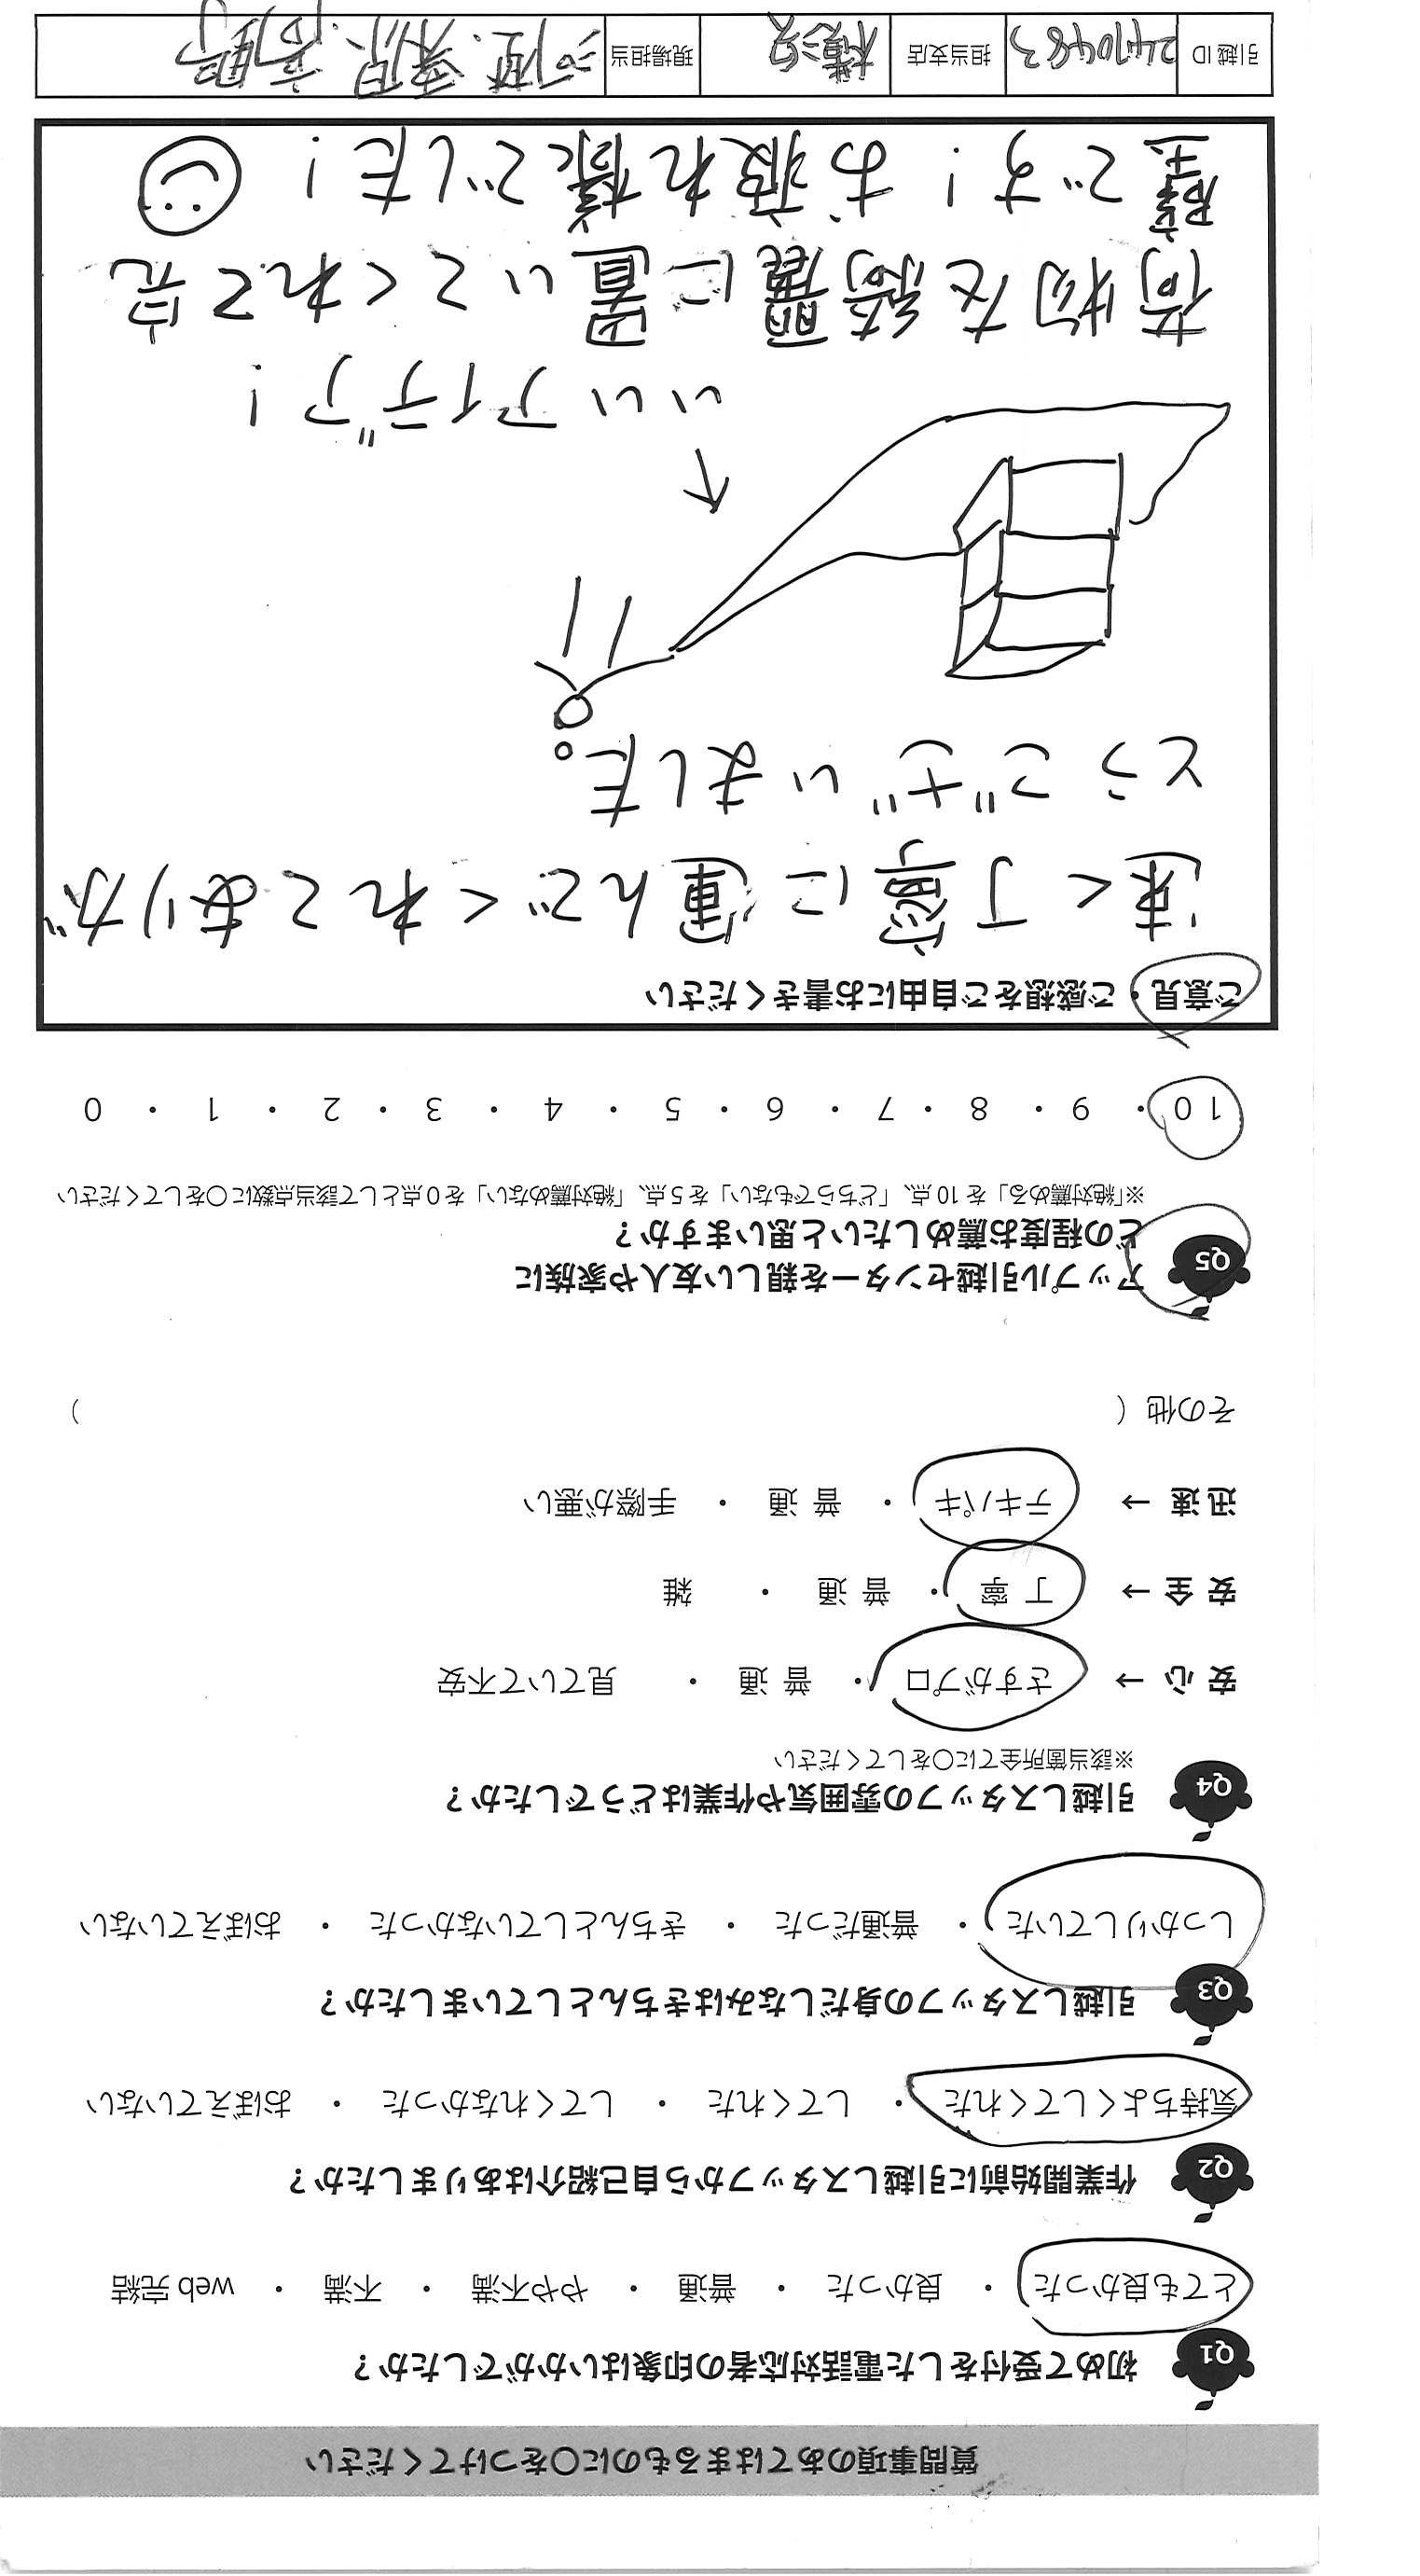 質問事項のあてはまるものに〇をつけてください
Q1 初めて受付をした電話対応者の印象はいかがでしたか？
とても良かった ・ 良かった ・ 普通 ・ やや不満 ・ 不満 ・ web 完結
Q2 作業開始前に引越しスタッフから自己紹介はありましたか？
気持ちよくしてくれた ・ してくれた ・ してくれなかった ・ おぼえていない
Q3 引越しスタッフの身だしなみはきちんとしていましたか？
しっかりしていた ・ 普通だった ・ きちんとしていなかった ・ おぼえていない
Q4 引越しスタッフの雰囲気や作業はどうでしたか？
※該当箇所全てに〇をしてください
安心 → さすがプロ ・ 普通 ・ 見ていて不安
安全 → 丁寧 ・ 普通 ・ 雑
迅速 → テキパキ ・ 普通 ・ 手際が悪い
その他（ ）
Q5 アップル引越センターを親しい友人や家族に
どの程度お薦めしたいと思いますか？
※「絶対薦める」を 10 点、「どちらでもない」を 5 点、「絶対薦めない」を 0 点として該当点数に〇をしてください
10 ・ 9 ・ 8 ・ 7 ・ 6 ・ 5 ・ 4 ・ 3 ・ 2 ・ 1 ・ 0
ご意見・ご感想をご自由にお書きください
速く丁寧に運んでくれてありが
とうございました。
いいアイデア！
荷物を綺麗に置いてくれて完
璧です！お疲れ様でした！
引越 ID 2470483 担当支店 横浜 現場担当 高野